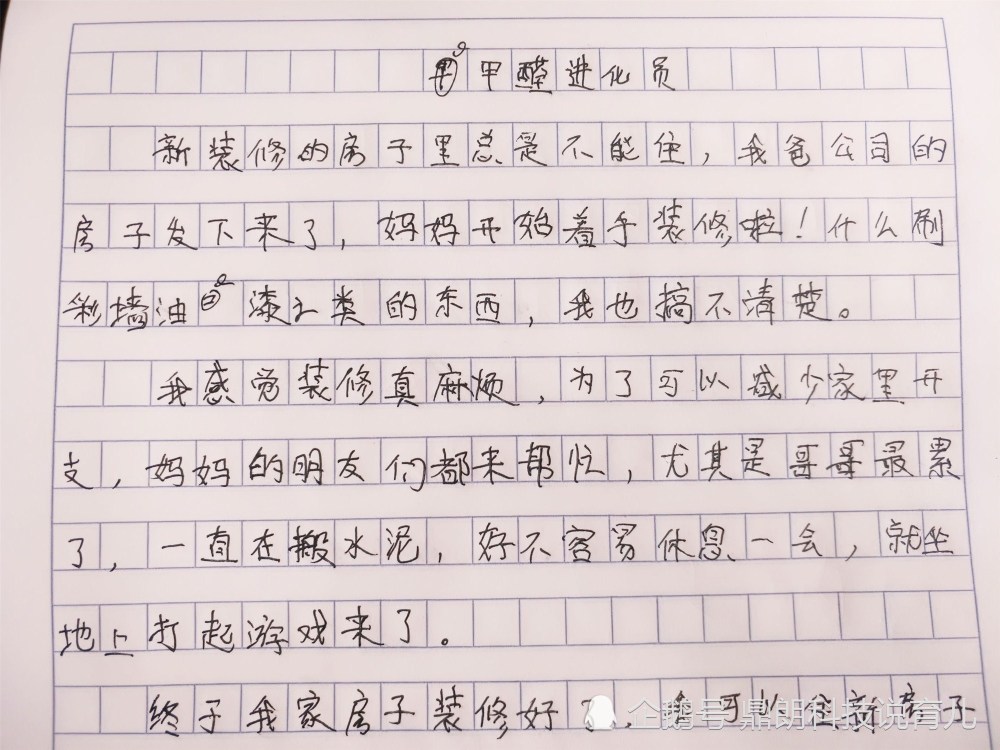 甲醛进化员
新装修的房子里总是不能住，我爸公司的
房子发下来了，妈妈开始着手装修啦！什么刷
彩墙油漆之类的东西，我也搞不清楚。
我感觉装修真麻烦，为了可以减少家里开
支，妈妈的朋友们都来帮忙，尤其是哥哥最累
了，一直在搬水泥，好不容易休息一会，就坐
地上打起游戏来了。
终于我家房子装修好了，可以住新房子
企鹅号 鼎朗科技说育儿